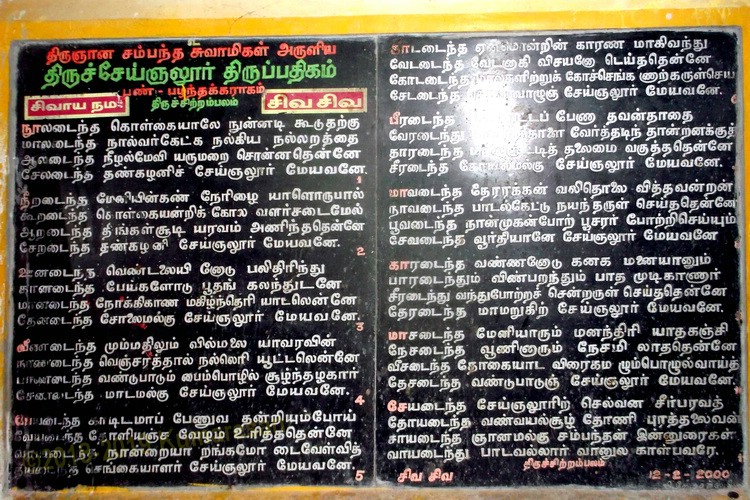 திருஞான சம்பந்த சுவாமிகள் அருளிய
திருச்சேய்ஞலூர் திருப்பதிகம்
பண் - பழந்தக்கராகம்
சிவாய நம
திருச்சிற்றம்பலம்
சிவ சிவ
நூலடைந்த கொள்கையாலே நுன்னடி கூடுதற்கு
மாலடைந்த நால்வர்கேட்க நல்கிய நல்லறத்தை
ஆலடைந்த நீழல்மேவி யருமறை சொன்னதென்னே
சேலடைந்த தண்கழனிச் சேய்ஞலூர் மேயவனே.
1
நீறடைந்த மேனியின்கண் நேரிழை யாளொருபால்
கூறடைந்த கொள்கையன்றிக் கோல வளர்சடைமேல்
ஆறடைந்த திங்கள்சூடி யரவம் அணிந்ததென்னே
சேறடைந்த தண்கழனி சேய்ஞலூர் மேயவனே.
2
ஊனடைந்த வெண்டலையி னோடு பலிதிரிந்து
கானடைந்த பேய்களோடு பூதங் கலந்துடனே
மானடைந்த நோக்கிகாண மகிழ்ந்தெரி யாடலென்னே
தேனடைந்த சோலைமல்கு சேய்ஞலூர் மேயவனே.
3
வீணடைந்த மும்மதிலும் வில்மலை யாவரவின்
நாணடைந்த வெஞ்சரத்தால் நல்லெரி யூட்டலென்னே
பாணடைந்த வண்டுபாடும் பைம்பொழில் சூழ்ந்தழகார்
சேணடைந்த மாடமல்கு சேய்ஞலூர் மேயவனே.
4
பேயடைந்த காடிடமாப் பேணுவ தன்றியும்போய்
வேயடைந்த தோளியஞ்ச வேழம் உரித்ததென்னே
வாயடைந்த நான்மறையா றங்கமோ டைவேள்வித்
தீயடைந்த செங்கையாளர் சேய்ஞலூர் மேயவனே.
5
காடடைந்த ஏனமொன்றின் காரண மாகிவந்து
வேடடைந்த வேடனாகி விசயனோ டெய்ததென்னே
கோடடைந்த மால்களிற்றுக் கோச்செங்க ணாற்கருள்செய்
சேடடைந்த செல்வர்வாழுஞ் சேய்ஞலூர் மேயவனே.
பீரடைந்த பேணா தவன்தாதை
வேரடைந்து வேர்த்தடிந் தான்றனக்குத்
தாரடைந்த தலைமை வகுத்ததென்னே
சீரடைந்த கோயில்மல்கு சேய்ஞலூர் மேயவனே.
மாவடைந்த தேரரக்கன் வலிதொலை வித்தவன்றன்
நாவடைந்த பாடல்கேட்டு நயந்தருள் செய்ததென்னே
பூவடைந்த நான்முகன்போற் பூசுரர் போற்றிசெய்யும்
சேவடைந்த ஊர்தியானே சேய்ஞலூர் மேயவனே
காரடைந்த வண்ணனோடு கனக மனையானும்
பாரடைந்தும் விண்பறந்தும் பாத முடிகாணார்
சீரடைந்து வந்துபோற்றச் சென்றருள் செய்ததென்னே
தேரடைந்த மாமறுகிற் சேய்ஞலூர் மேயவனே.
மாசடைந்த மேனியாரும் மனந்திரி யாதகஞ்சி
நேசடைந்த வூணினாரும் நேசமி லாததென்னே
வீசடைந்த தோகையாட விரைகம ழும்பொழில்வாய்த்
தேசடைந்த வண்டுபாடுஞ் சேய்ஞலூர் மேயவனே.
சேயடைந்த சேய்ஞலூரிற் செல்வன சீர்பரவத்
தோயடைந்த வண்வயல்சூழ் தோணி புரத்தலைவன்
சாயடைந்த ஞானமல்கு சம்பந்தன் இன்னுரைகள்
வாயடைந்து பாடவல்லார் வானுல காள்பவரே.
திருச்சிற்றம்பலம்
சிவ சிவ
12-2-2000